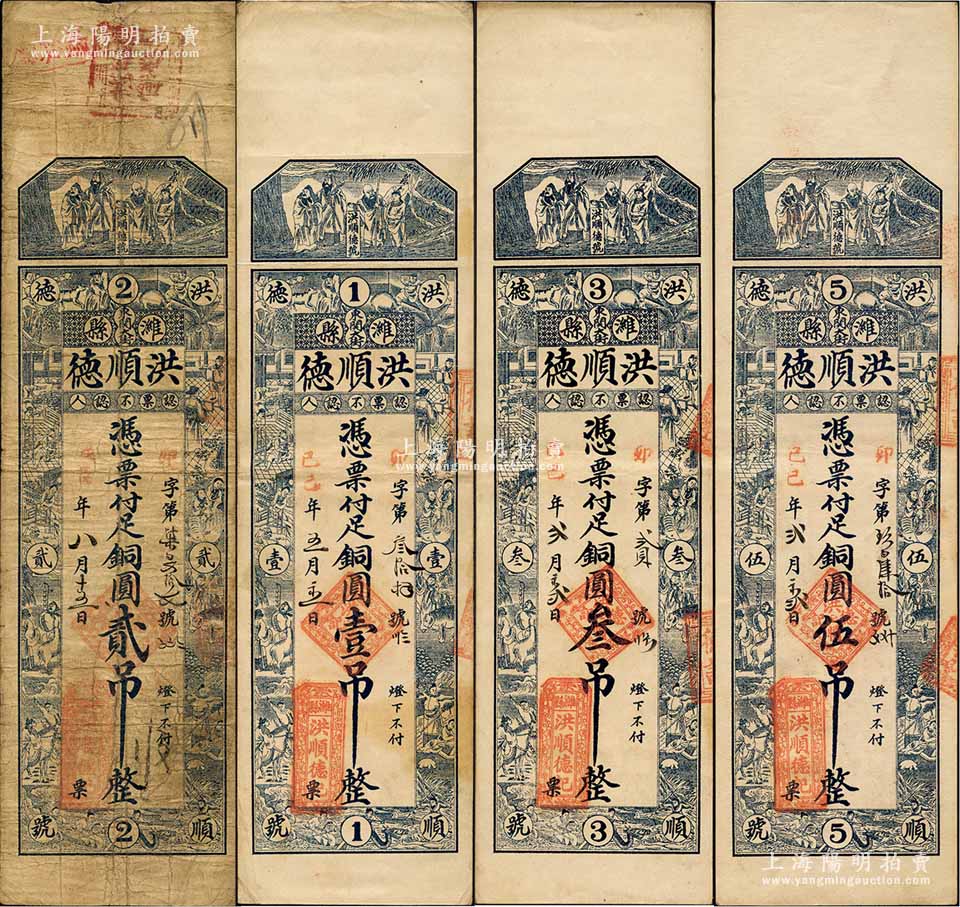 上海陽明拍賣
www.yangmingauction.com
洪順德號
德 2 洪
縣 東關大街 濰
德順洪
人認不票認
憑票付足銅圓貳吊整
卯
字第
號
燈下不付
年八月十五日
票
貳 貳
號 2 順
洪順德號
德 1 洪
縣 東關大街 濰
德順洪
人認不票認
憑票付足銅圓壹吊整
卯
字第叁拾
號
燈下不付
己巳
年五月
日
票
壹 壹
濰縣
洪順德記
號 1 順
洪順德號
德 3 洪
縣 東關大街 濰
德順洪
人認不票認
憑票付足銅圓叁吊整
卯
字第
號
燈下不付
己巳
年弍月
日
票
叁 叁
濰縣
洪順德記
號 3 順
洪順德號
德 5 洪
縣 東關大街 濰
德順洪
人認不票認
憑票付足銅圓伍吊整
卯
字第
號
燈下不付
己巳
年弍月
日
票
伍 伍
濰縣
洪順德記
號 5 順
上海陽明拍賣
www.yangmingauction.com
上海陽明拍賣
www.yangmingauction.com